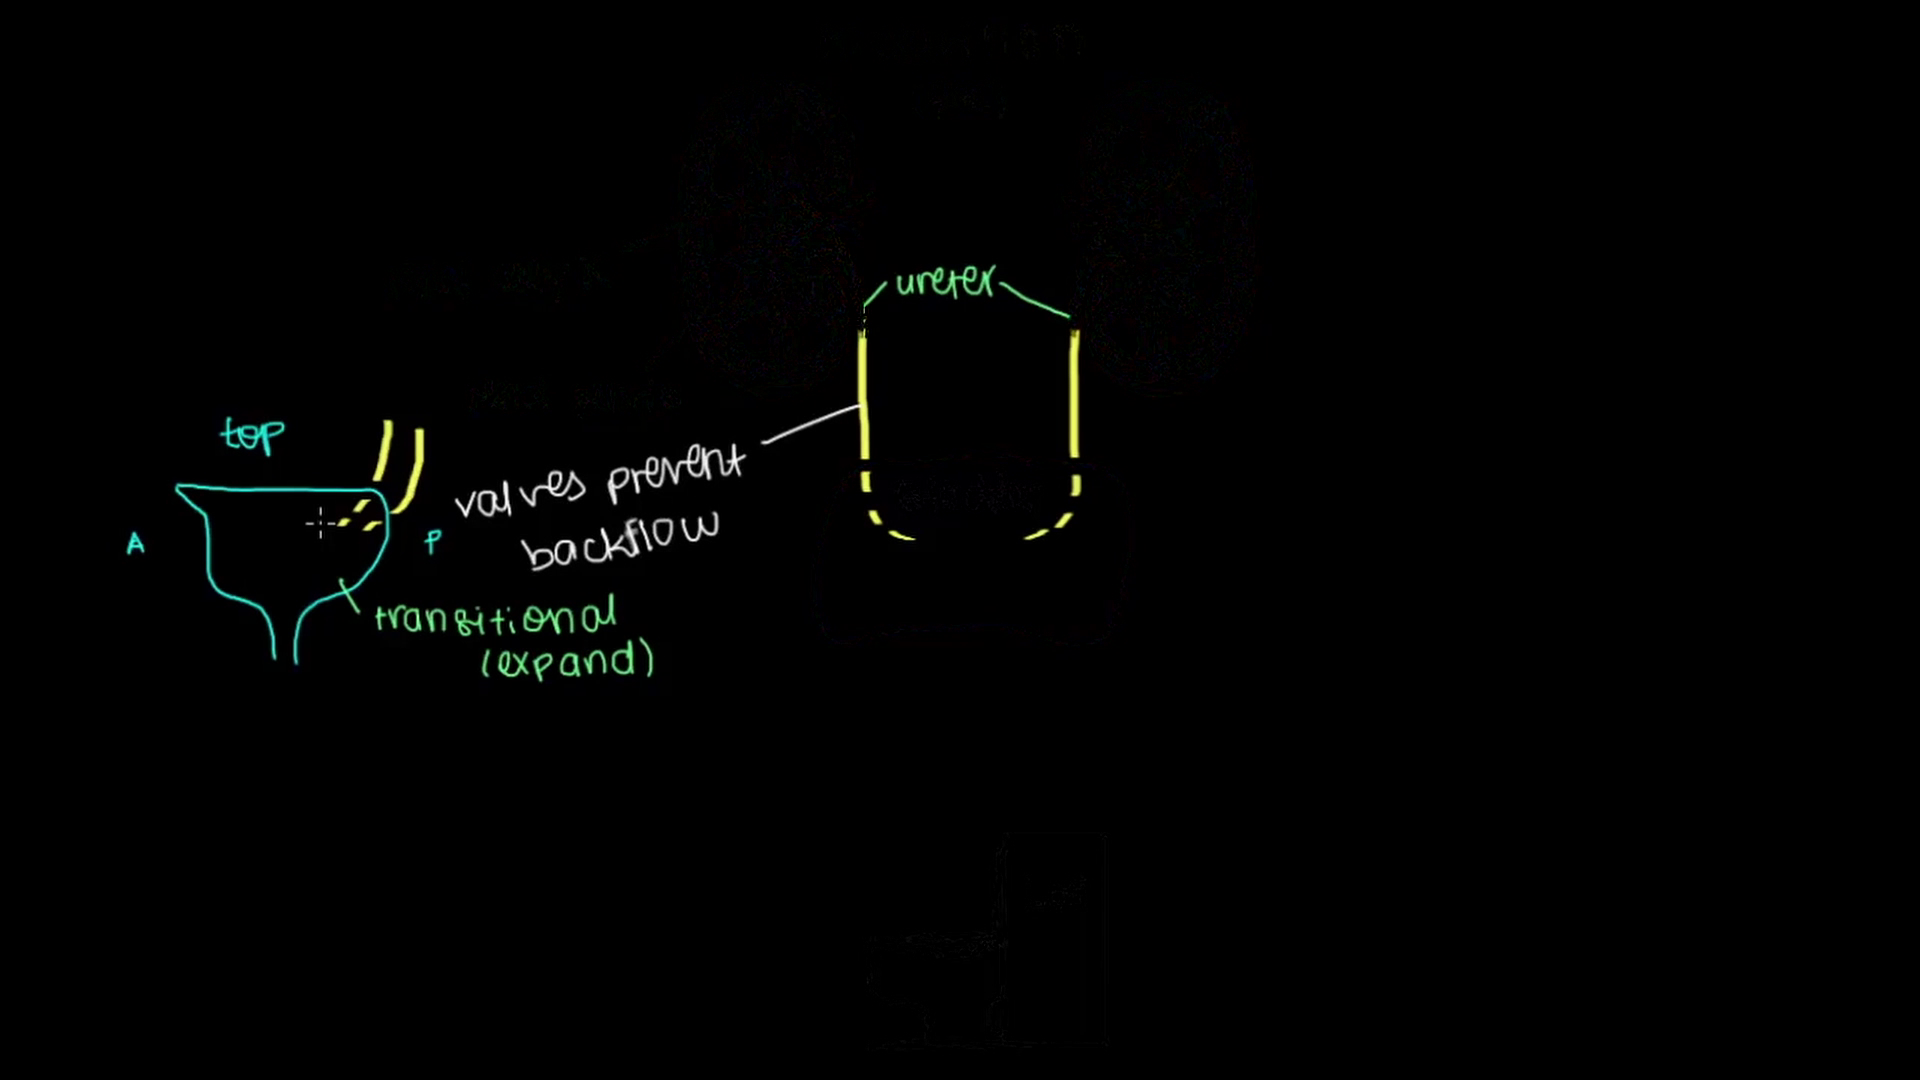 ureter
top
valves prevent
backflow
A
P
transitional
(expand)